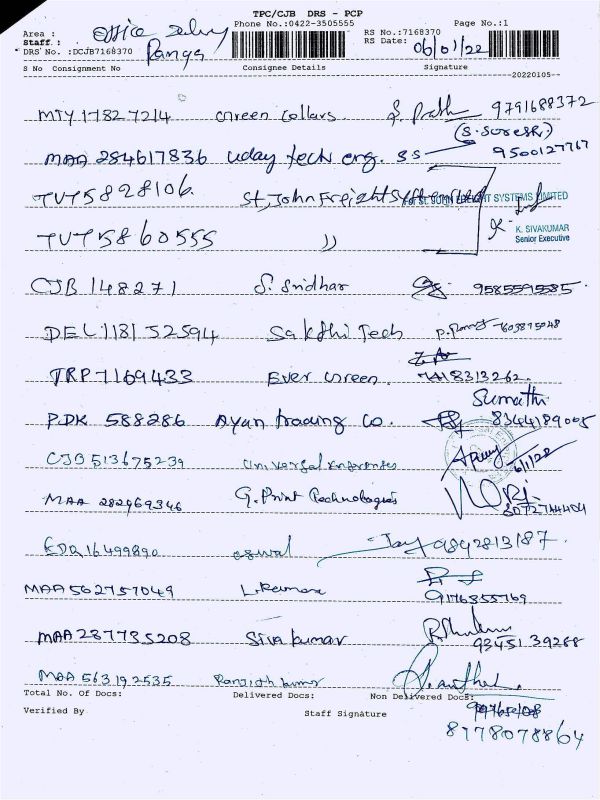 TPC/CJB DRS - PCP
Area : Phone No.:0422-3505555 RS No.:7168370 Page No.:1
Staff.: RS Date: 06/01/22
DRS No. :DCJB7168370 Ranga
S No Consignment No Consignee Details Signature
--20220105--
MTY 17827214 Green Collars. 9791688372
(S. Suresh)
MAA 284617836 Uday tech eng. SS 9500127767
TVT 5828106. St, John Freight Systems
SYSTEMS LIMITED
TVT 5860555 )) K. SIVAKUMAR
Senior Executive
CJB 148271 S. Sridhar 9585591585.
DEL 118152594 Sakthi Tech
TRP 7169433 Ever Green. 7418313262.
Sumathi
PDK 588286 Ayan trading Co. 8344189005
CJB 513675239 6/1/22
MAA 282969346 G. Print Technologies
8072744404
EDR 16499890 oswal Jay 9842813187.
MAA 562757049 L. Ramana 9176355769
MAA 237735208 Siva kumar 9345139268
MAA 563192535 Ranjith kumar
Total No. Of Docs: Delivered Docs: Non Delivered Docs:
Verified By Staff Signature
8778078864